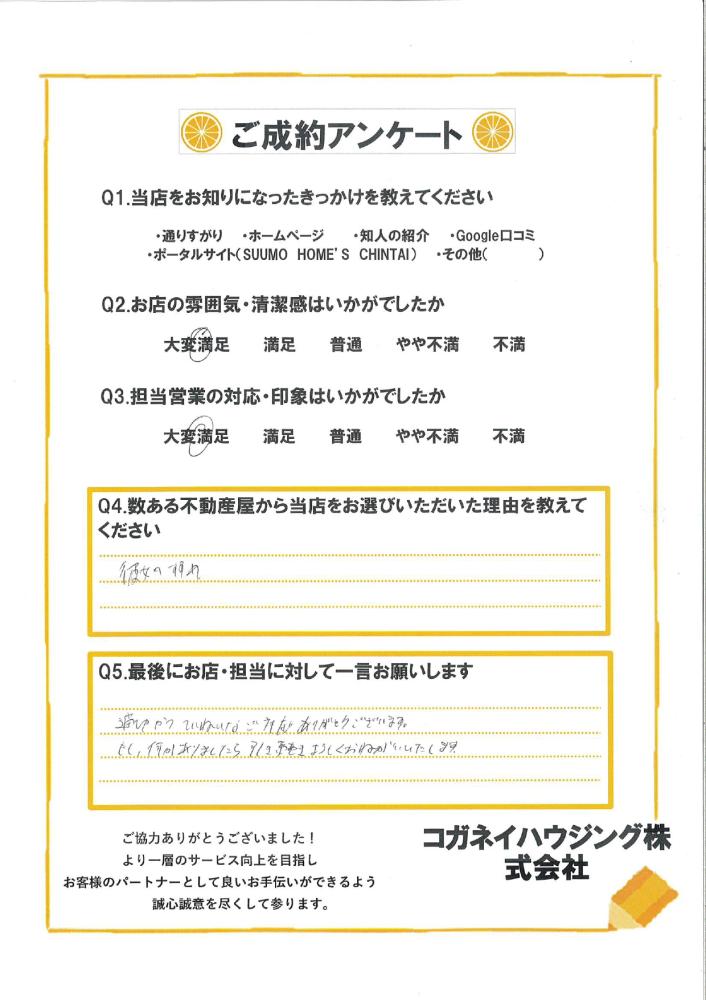 ご成約アンケート
Q1.当店をお知りになったきっかけを教えてください
・通りすがり ・ホームページ ・知人の紹介 ・Google口コミ
・ポータルサイト(SUUMO HOME'S CHINTAI) ・その他( )
Q2.お店の雰囲気・清潔感はいかがでしたか
大変満足 満足 普通 やや不満 不満
Q3.担当営業の対応・印象はいかがでしたか
大変満足 満足 普通 やや不満 不満
Q4.数ある不動産屋から当店をお選びいただいた理由を教えて
ください
彼女の
Q5.最後にお店・担当に対して一言お願いします
ていねいなご対応ありがとうございます。
もし、何かありましたら引き続きよろしくおねがいいたします
ご協力ありがとうございました！
より一層のサービス向上を目指し
お客様のパートナーとして良いお手伝いができるよう
誠心誠意を尽くして参ります。
コガネイハウジング株
式会社